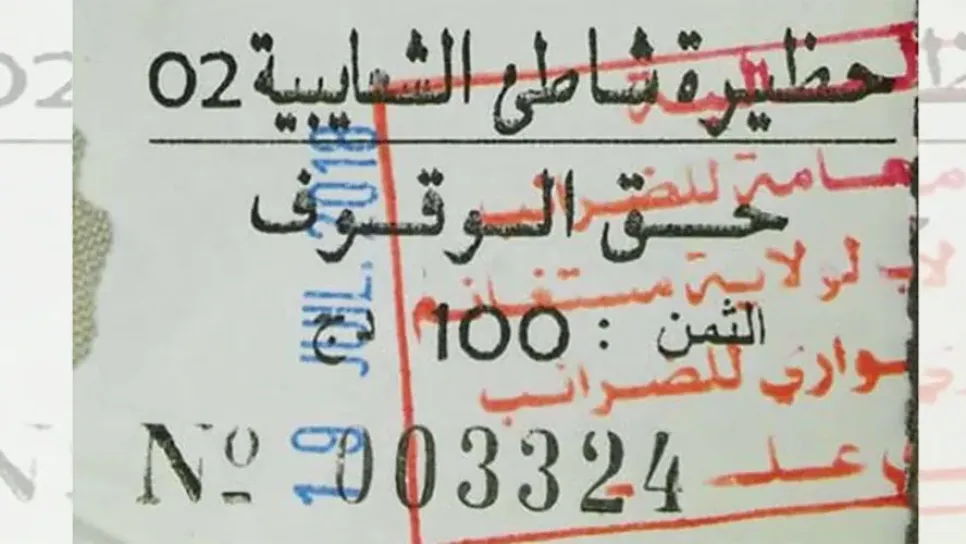 حظيرة شاطئ الشعايبية 02
حق الوقوف
الثمن : 100 دج
Nº 003324
19 JUIL. 2018
للضرائب
لولاية مستغانم
ـواري للضرائب